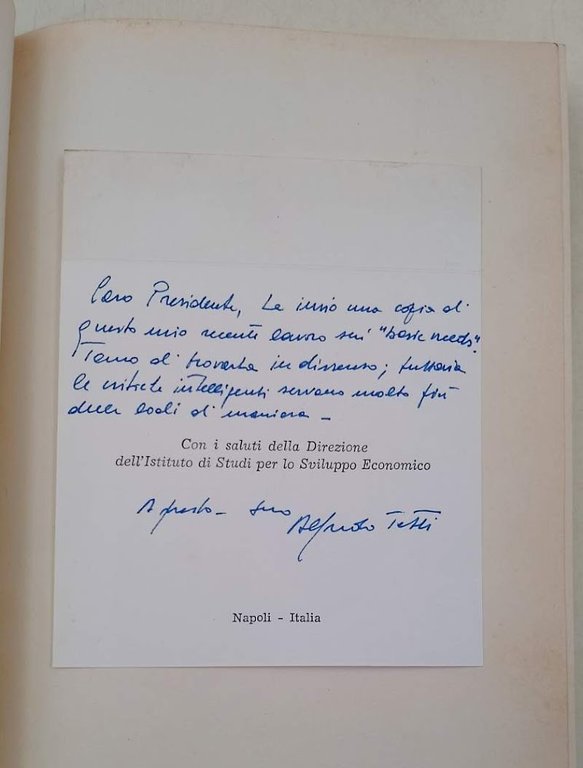 Caro Presidente, Le invio una copia di
questo mio recente lavoro sui "basic needs".
Temo di trovarla in dissenso; tuttavia
le critiche intelligenti servono molto più
delle lodi di maniera –
Con i saluti della Direzione
dell'Istituto di Studi per lo Sviluppo Economico
A presto – Suo
Alfredo Testi
Napoli - Italia